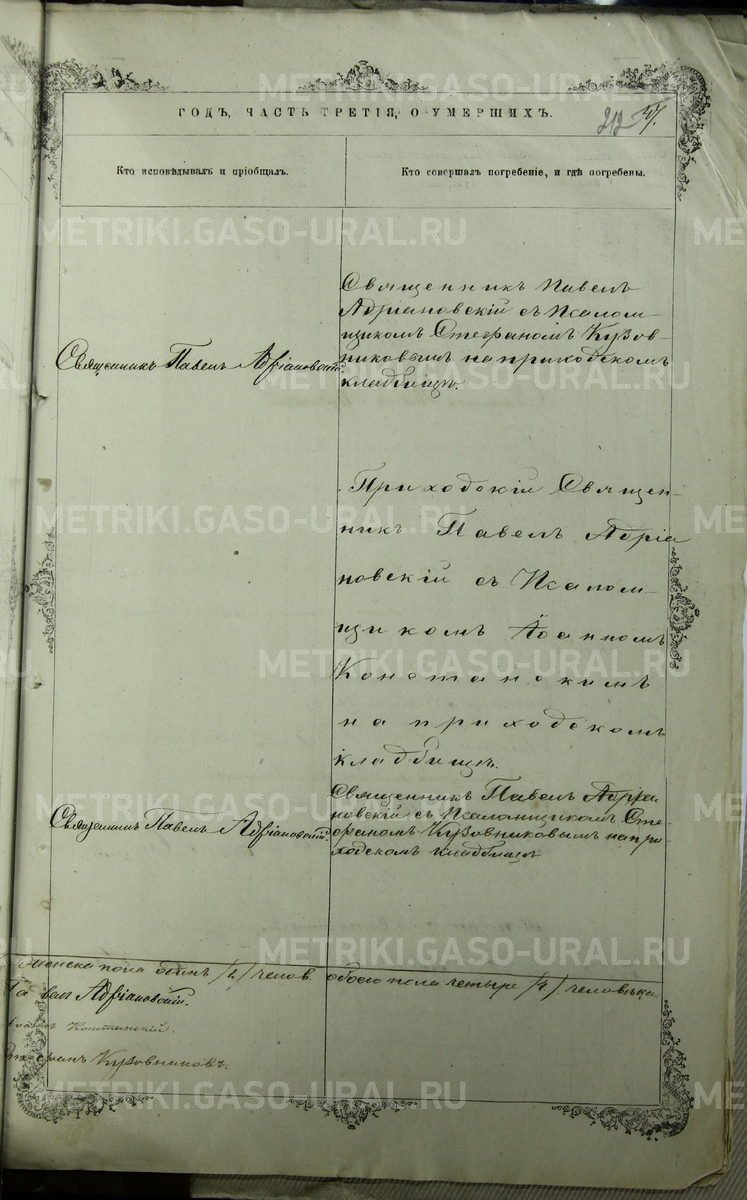 ГОДЪ, ЧАСТЬ ТРЕТІЯ, О УМЕРШИХЪ.
212
Кто исповѣдывалъ и пріобщалъ.
Кто совершалъ погребеніе, и гдѣ погребены.
Священникъ Павелъ Адріановскій.
Священникъ Павелъ
Адріановскій съ Псалом-
щикомъ Стефаномъ Кузов-
никовымъ на приходскомъ
кладбищѣ.
Приходскій Священ-
никъ Павелъ Адріа
новскій съ Псалом-
щикомъ Іоанномъ
Констанскимъ
на приходскомъ
кладбищѣ.
Священникъ Павелъ Адріановскій.
Священникъ Павелъ Адріа
новскій съ Псаломщикомъ Сте
фаномъ Кузовниковымъ на при
ходскомъ кладбищѣ
женска пола челов. обоего пола четыре /4/. человѣка
Павелъ Адріановскій.
Констанскій.
Кузовниковъ.
METRIKI.GASO-URAL.RU